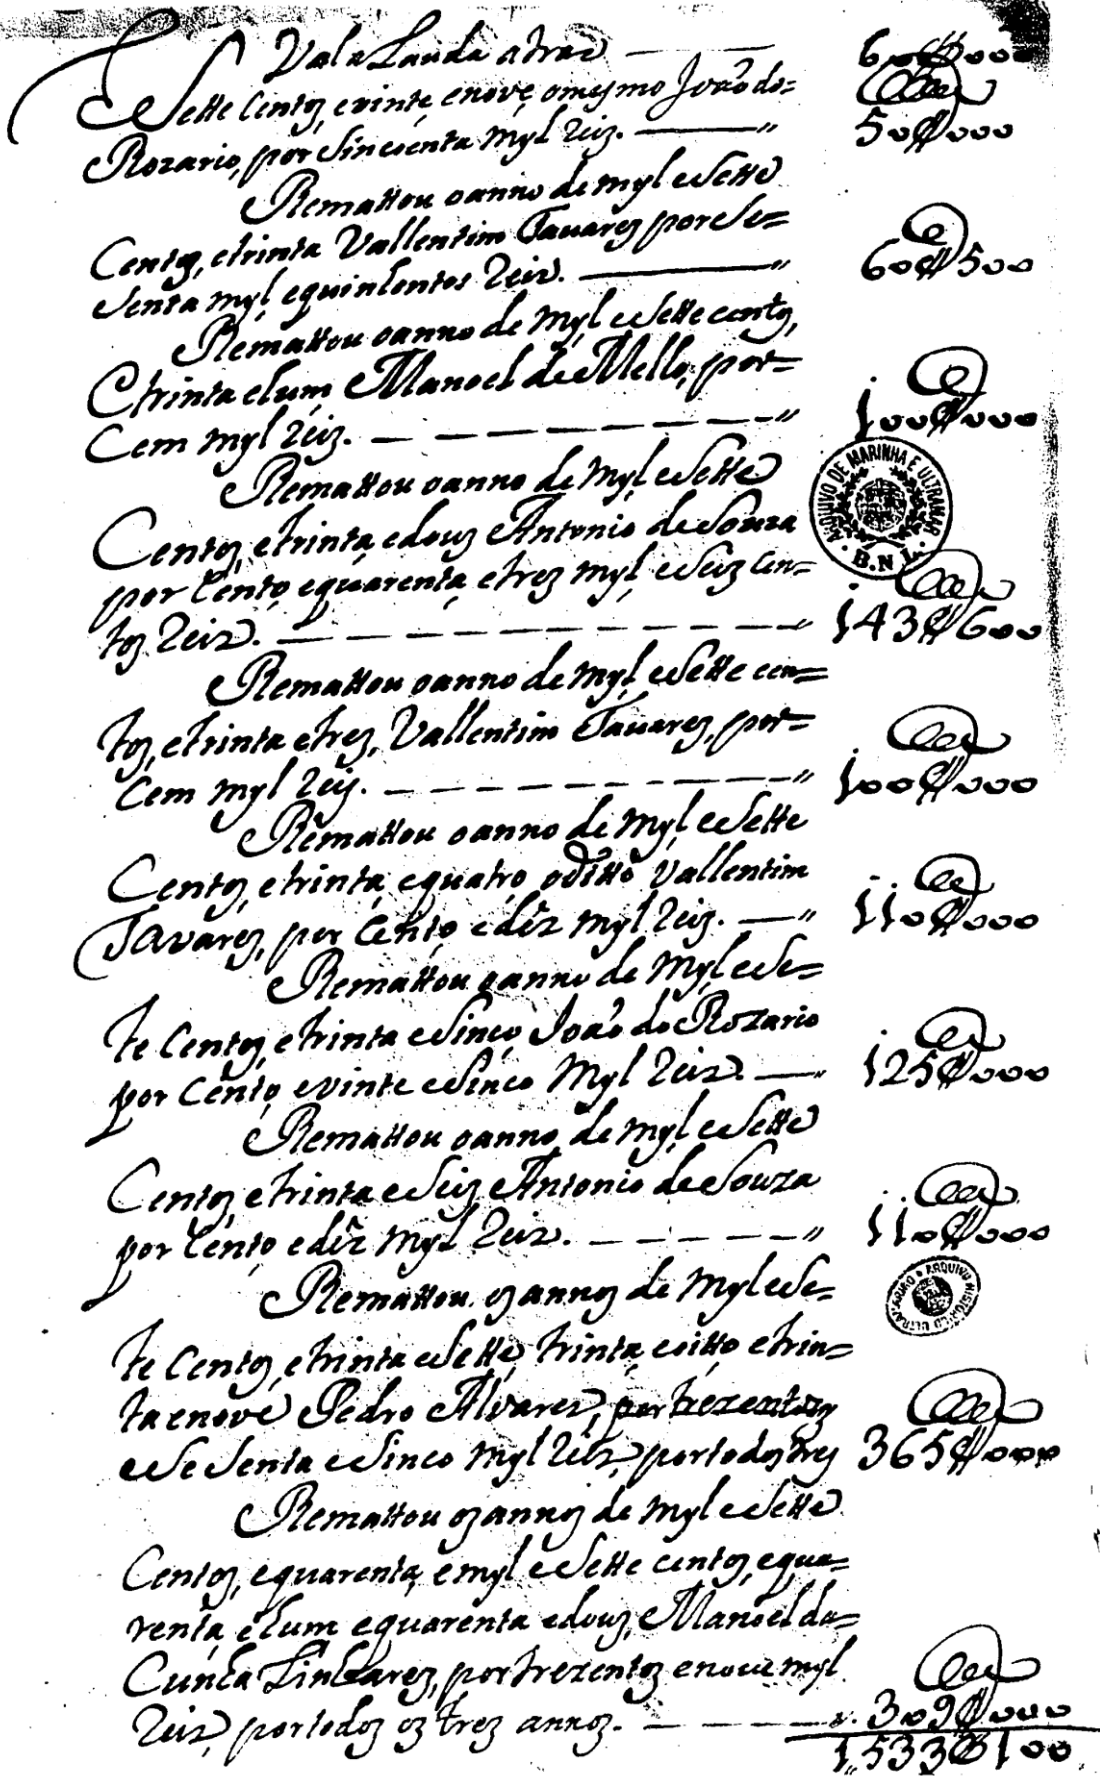 Val a Lauda atras 60$000
Sette Centos, e vinte, e nove, o mesmo João do=
Rozario, por Sincoenta Myl Reis. 50$000
Remattou o anno de myl e Sette
Centos, e trinta Vallentim Tavares por Se=
senta myl, e quinhentos Reis. 60$500
Remattou o anno de Myl e Sette centos,
E trinta e hum Manoel de Mello, por=
Cem myl reis. 100$000
Remattou o anno de Myl e Sette
Centos, e trinta, e dous Antonio de Souza
por Cento, e quarenta, e tres myl, e Seis Cen=
tos Reis. 143$600
Remattou o anno de Myl e Sette cen=
tos, e trinta e tres, Vallentim Tavares, por=
Cem myl Reis. 100$000
Remattou o anno de Myl e Sette
Centos, e trinta, e quatro, o ditto Vallentim
Tavares, por Cento e dês myl Reis. 110$000
Remattou o anno de Myl e Se=
te Centos, e trinta e Sinco João do Rozario
por Cento, e vinte e Sinco Myl Reis. 125$000
Remattou o anno de Myl e Sette
Centos e trinta e Seis Antonio de Souza
por Cento e dês Myl Reis. 110$000
Remattou os annos de Myl e Se=
te Centos, e trinta e Sette, trinta, e oitto e trin=
ta e nove Pedro Alvares, por trezentos
e Sesenta e Sinco Myl Reis, por todos tres 365$000
Remattou os annos de Myl e Sette
Centos, e quarenta, e myl e Sette centos, e qua=
renta, e hum e quarenta e dous, Manoel da=
Cunha Linhares, por trezentos e nove myl
Reis, por todos os tres annos. 309$000
1,533$100
ARQUIVO DE MARINHA E ULTRAMAR
B.N.L.
ARQUIVO HISTÓRICO ULTRAMARINO